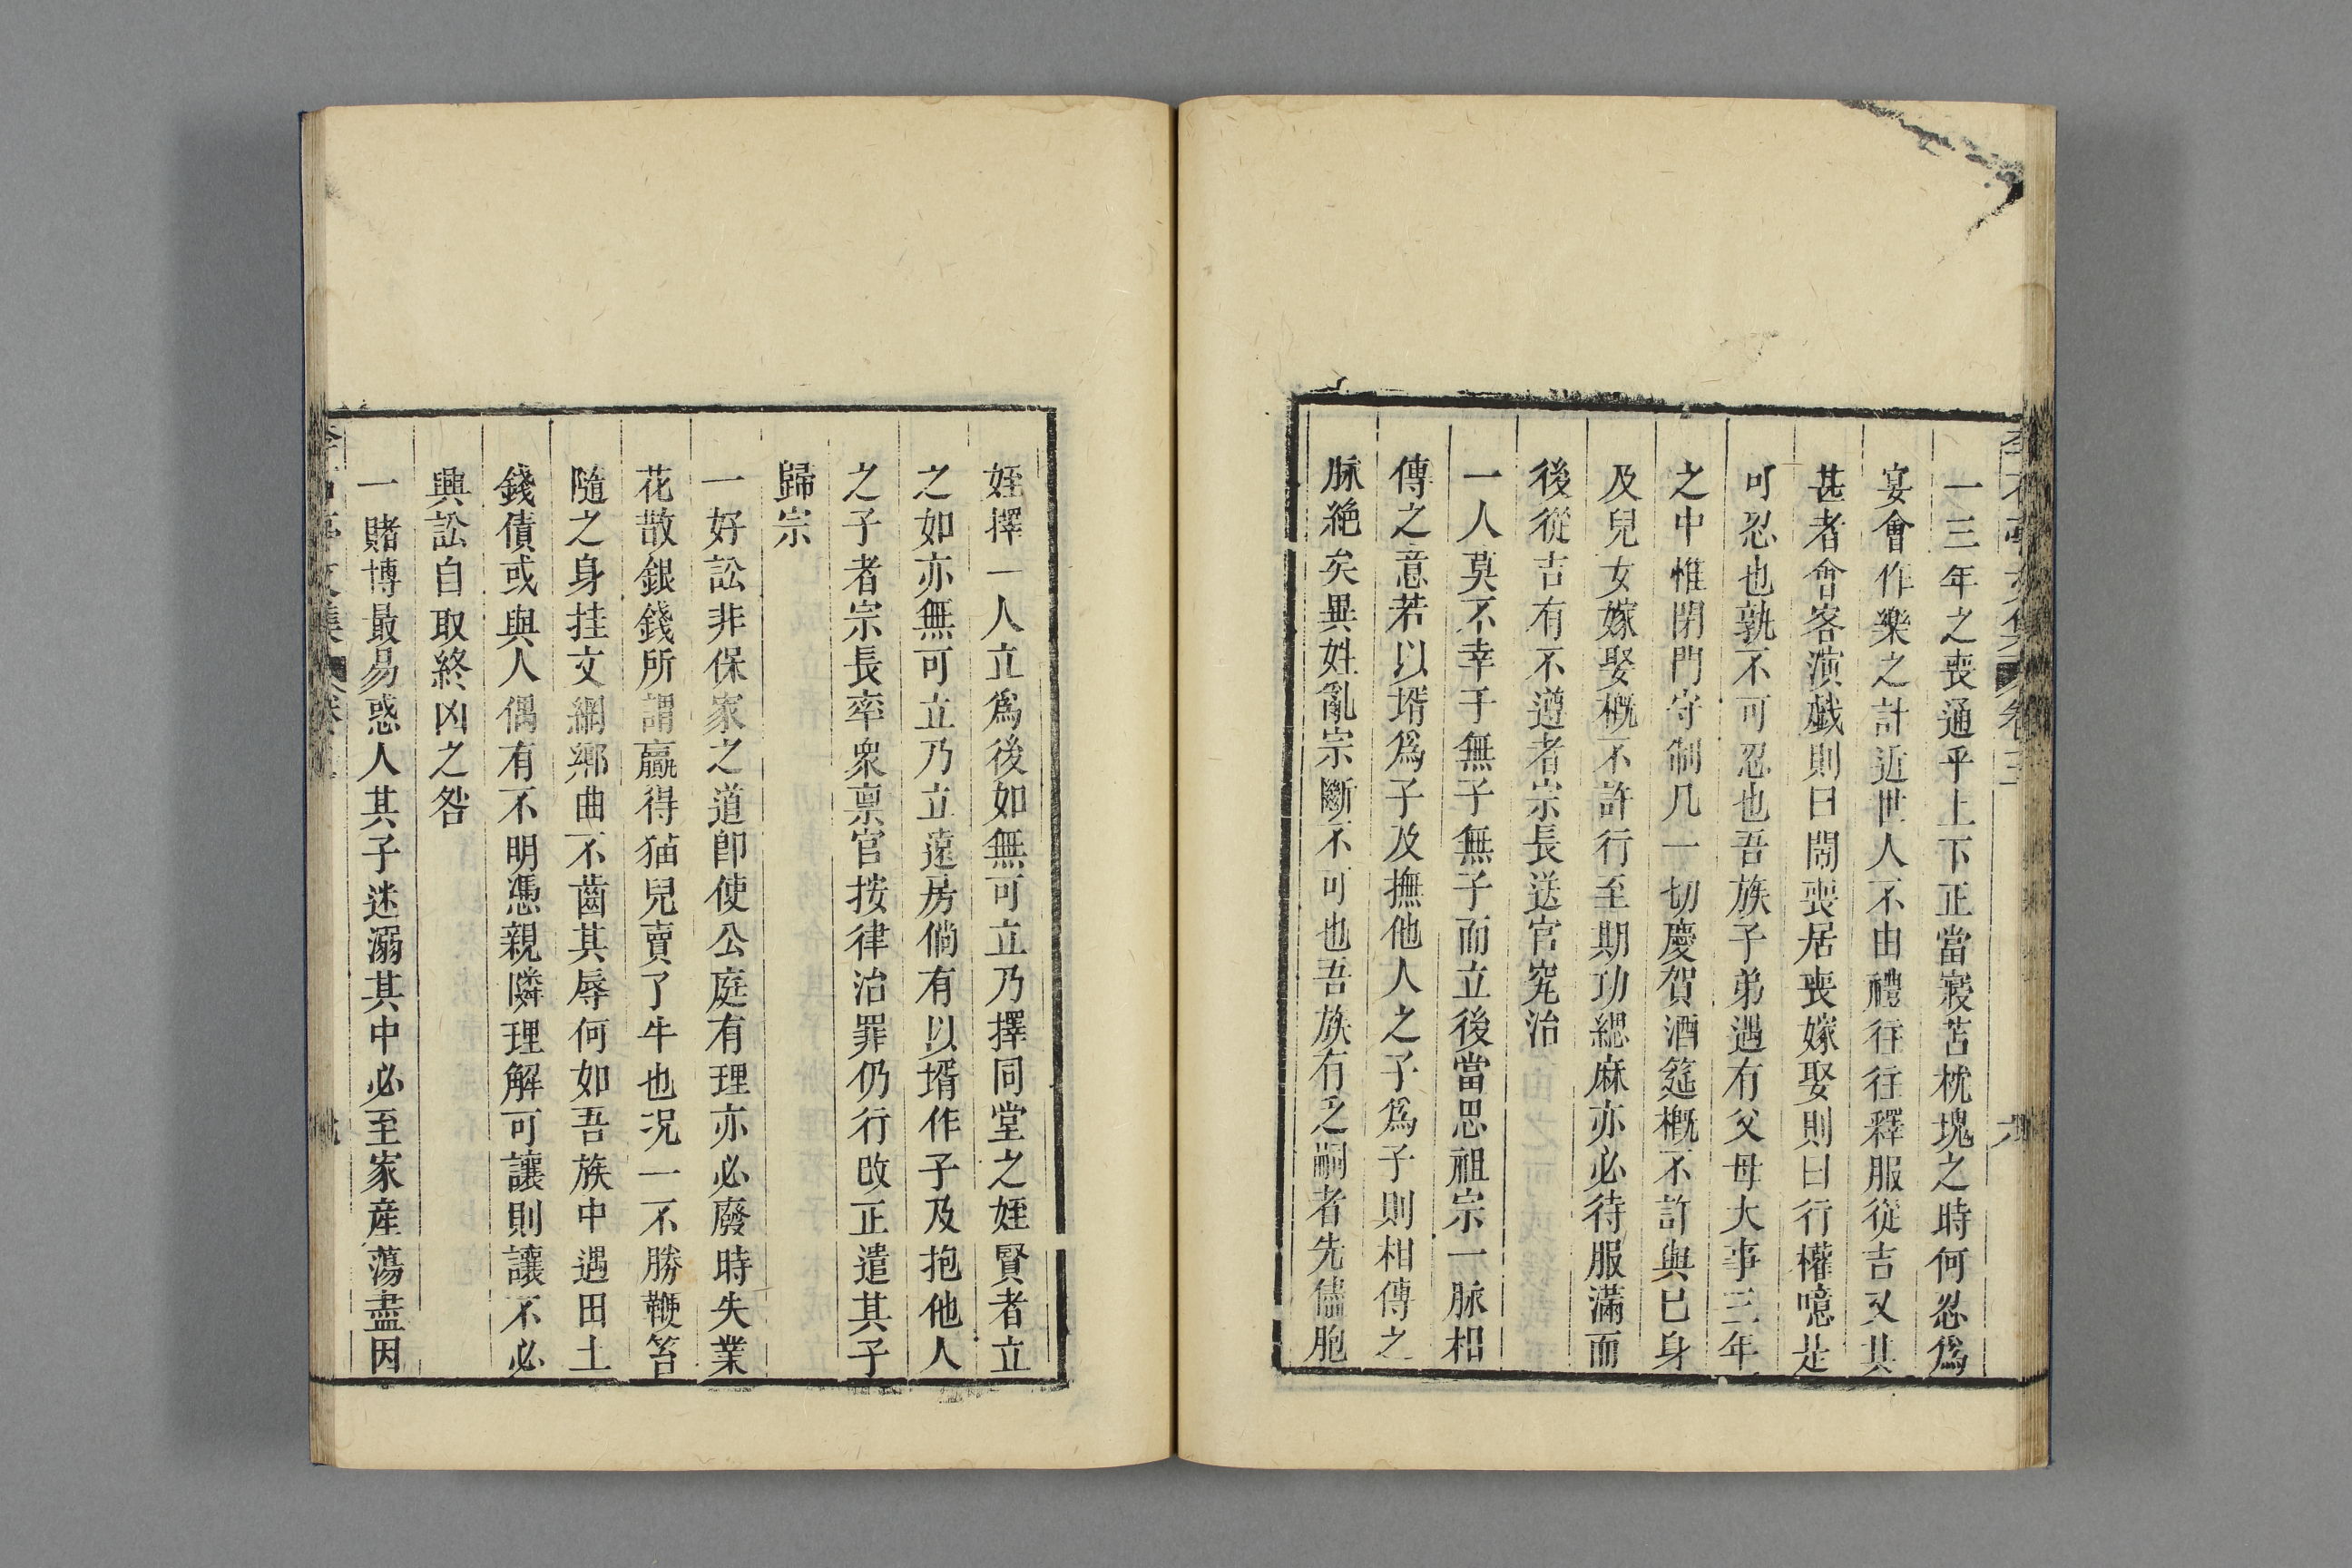 一三年之喪通乎上下正當寢苫枕塊之時何忍爲
宴會作樂之計近世人不由禮往往釋服從吉又其
甚者會客演戯則曰鬧喪居喪嫁娶則曰行權噫是
可忍也孰不可忍也吾族子弟遇有父母大事三年
之中惟閉門守制凡一切慶賀酒筵概不許與已身
及兒女嫁娶概不許行至期功緦麻亦必待服滿而
後從吉有不遵者宗長送官究治
一人莫不幸于無子無子而立後當思祖宗一脉相
傳之意若以壻爲子及撫他人之子爲子則相傳之
脉絶矣異姓亂宗斷不可也吾族有乏嗣者先儘胞
姪擇一人立爲後如無可立乃擇同堂之姪賢者立
之如亦無可立乃立遠房倘有以壻作子及抱他人
之子者宗長率衆禀官按律治罪仍行改正遣其子
歸宗
一好訟非保家之道卽使公庭有理亦必廢時失業
花散銀錢所謂贏得猫兒賣了牛也况一不勝鞭笞
隨之身挂文網鄉曲不齒其辱何如吾族中遇田土
錢債或與人偶有不明憑親隣理解可讓則讓不必
興訟自取終凶之咎
一賭博最易惑人其子迷溺其中必至家産蕩盡因